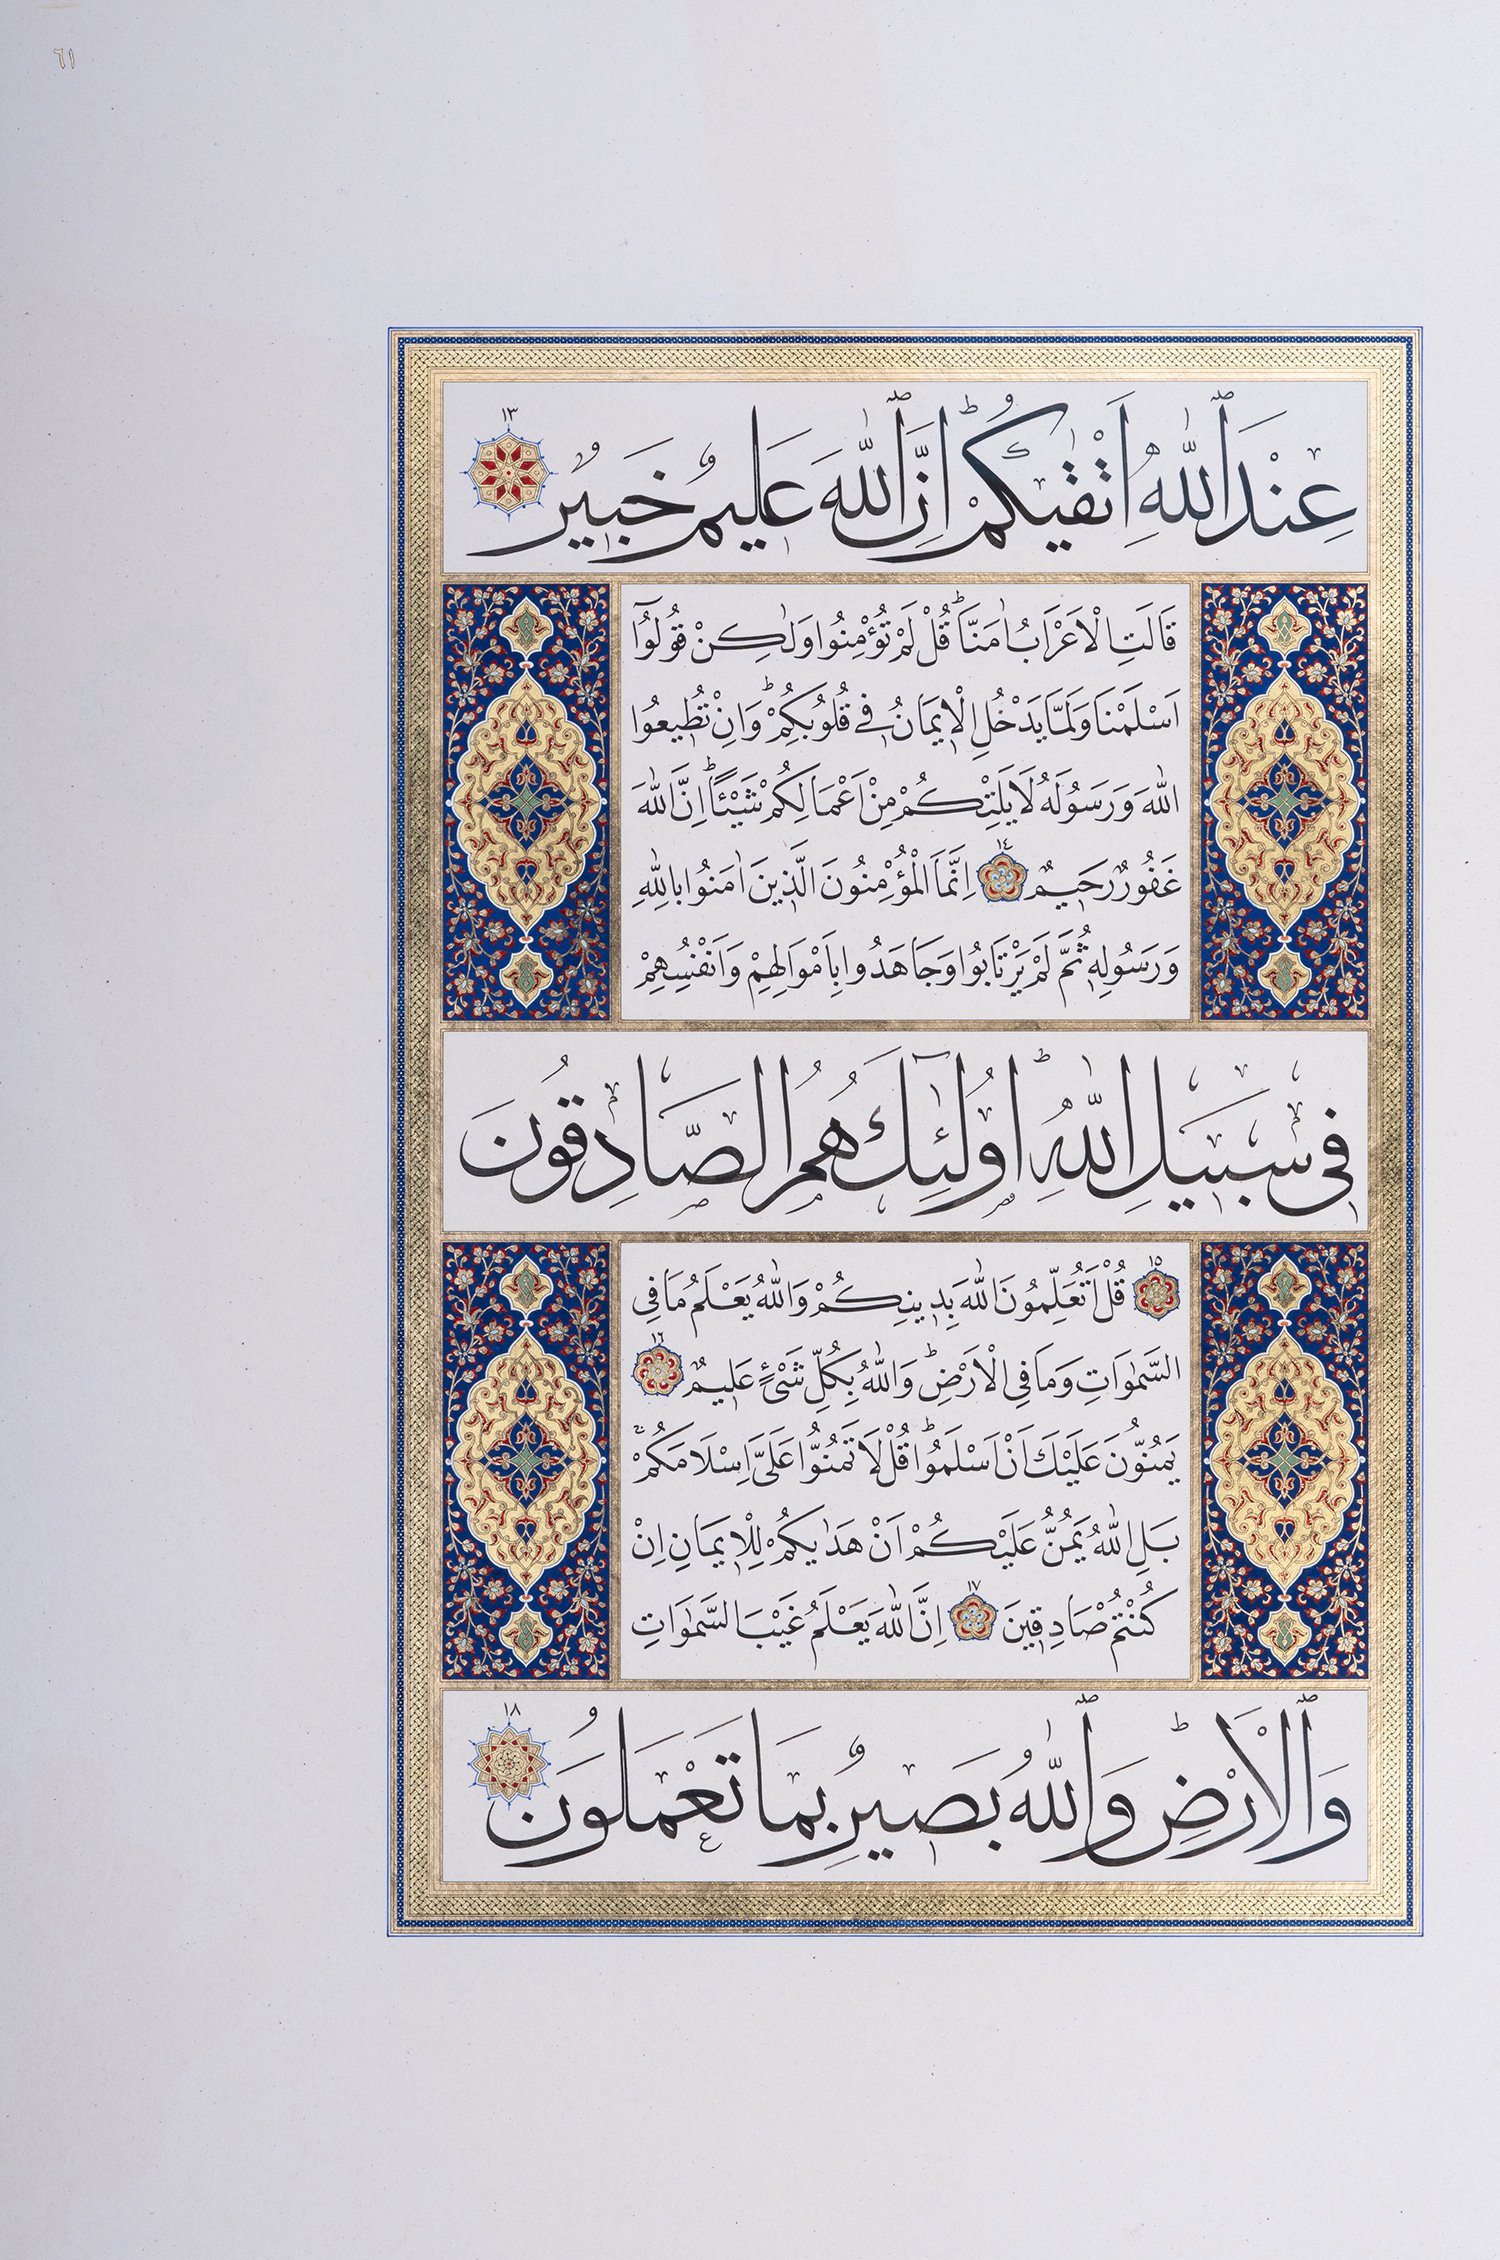 ٦١
عِنْدَ ٱللّٰهِ اَتْقٰيكُمْؕ اِنَّ ٱللّٰهَ عَلِيمٌ خَبِيرٌ ١٣
قَالَتِ الْاَعْرَابُ اٰمَنَّاؕ قُلْ لَمْ تُؤْمِنُوا وَلٰكِنْ قُولُوٓا
اَسْلَمْنَا وَلَمَّا يَدْخُلِ الْاٖيمَانُ فٖي قُلُوبِكُمْؕ وَاِنْ تُطٖيعُوا
اللّٰهَ وَرَسُولَهُ لَا يَلِتْكُمْ مِنْ اَعْمَالِكُمْ شَيْئًاؕ اِنَّ اللّٰهَ
غَفُورٌ رَحٖيمٌ ١٤ اِنَّمَا الْمُؤْمِنُونَ الَّذٖينَ اٰمَنُوا بِاللّٰهِ
وَرَسُولِهٖ ثُمَّ لَمْ يَرْتَابُوا وَجَاهَدُوا بِاَمْوَالِهِمْ وَاَنْفُسِهِمْ
فٖي سَبٖيلِ اللّٰهِؕ اُولٰٓئِكَ هُمُ الصَّادِقُونَ
١٥ قُلْ اَتُعَلِّمُونَ اللّٰهَ بِدٖينِكُمْ وَاللّٰهُ يَعْلَمُ مَا فِي
السَّمٰوَاتِ وَمَا فِي الْاَرْضِؕ وَاللّٰهُ بِكُلِّ شَيْئٍ عَلٖيمٌ ١٦
يَمُنُّونَ عَلَيْكَ اَنْ اَسْلَمُواؕ قُلْ لَا تَمُنُّوا عَلَيَّ اِسْلَامَكُمْۚ
بَلِ اللّٰهُ يَمُنُّ عَلَيْكُمْ اَنْ هَدٰيكُمْ لِلْاٖيمَانِ اِنْ
كُنْتُمْ صَادِقٖينَ ١٧ اِنَّ اللّٰهَ يَعْلَمُ غَيْبَ السَّمٰوَاتِ
وَٱلْاَرْضِؕ وَٱللّٰهُ بَصٖيرٌ بِمَا تَعْمَلُونَ ١٨